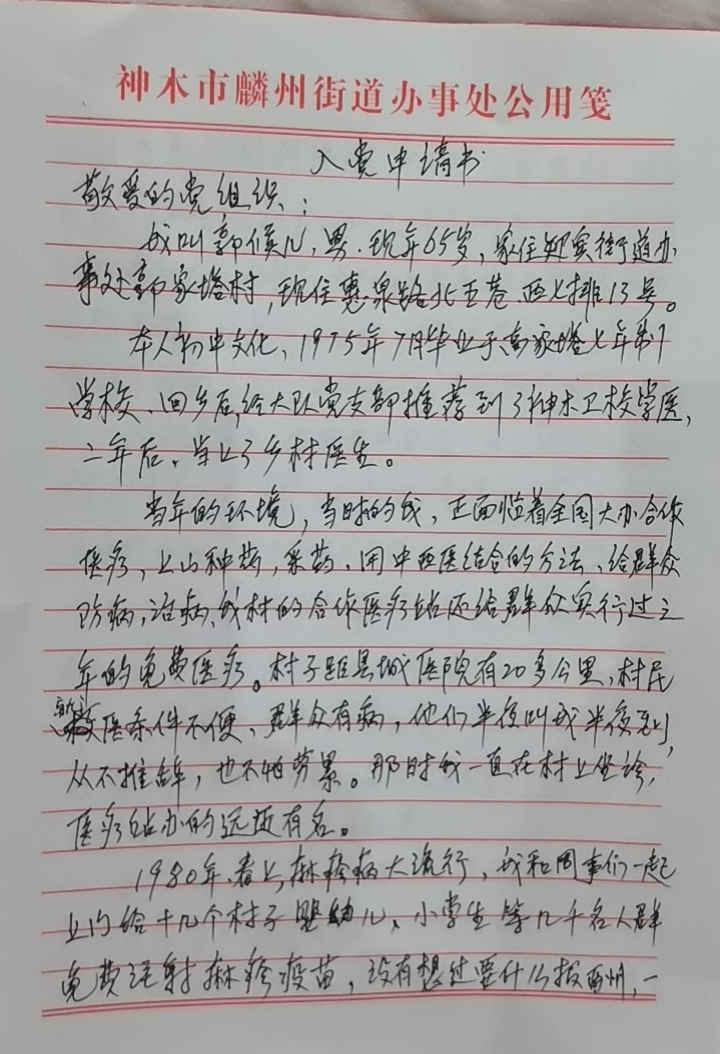 神木市麟州街道办事处公用笺
入党申请书
敬爱的党组织：
我叫郭候儿，男.现年65岁，家住迎宾街道办
事处郭家塔村，现住惠泉路北五巷西七排13号。
本人初中文化、1975年7月毕业于高家塔七年制
学校、回乡后,经大队党支部推荐到了神木卫校学医,
二年后、当上了乡村医生。
当年的环境，当时的我，正面临着全国大办合作
医疗，上山种药，采药、用中西医结合的方法、给群众
防病，治病、我村的合作医疗站还给群众实行过三
年的免费医疗。村子距县城医院有20多公里，村民
医条件不便、群众有病，他们半夜叫我半夜到，
从不推辞，也不怕劳累。那时我一直在村上坐诊，
医疗站办的远近有名。
1980年春上,麻疹病大流行，我和同事们一起
上门给十几个村子婴幼儿、小学生等几千名人群
免费注射麻疹疫苗，没有想过要什么报酬，一